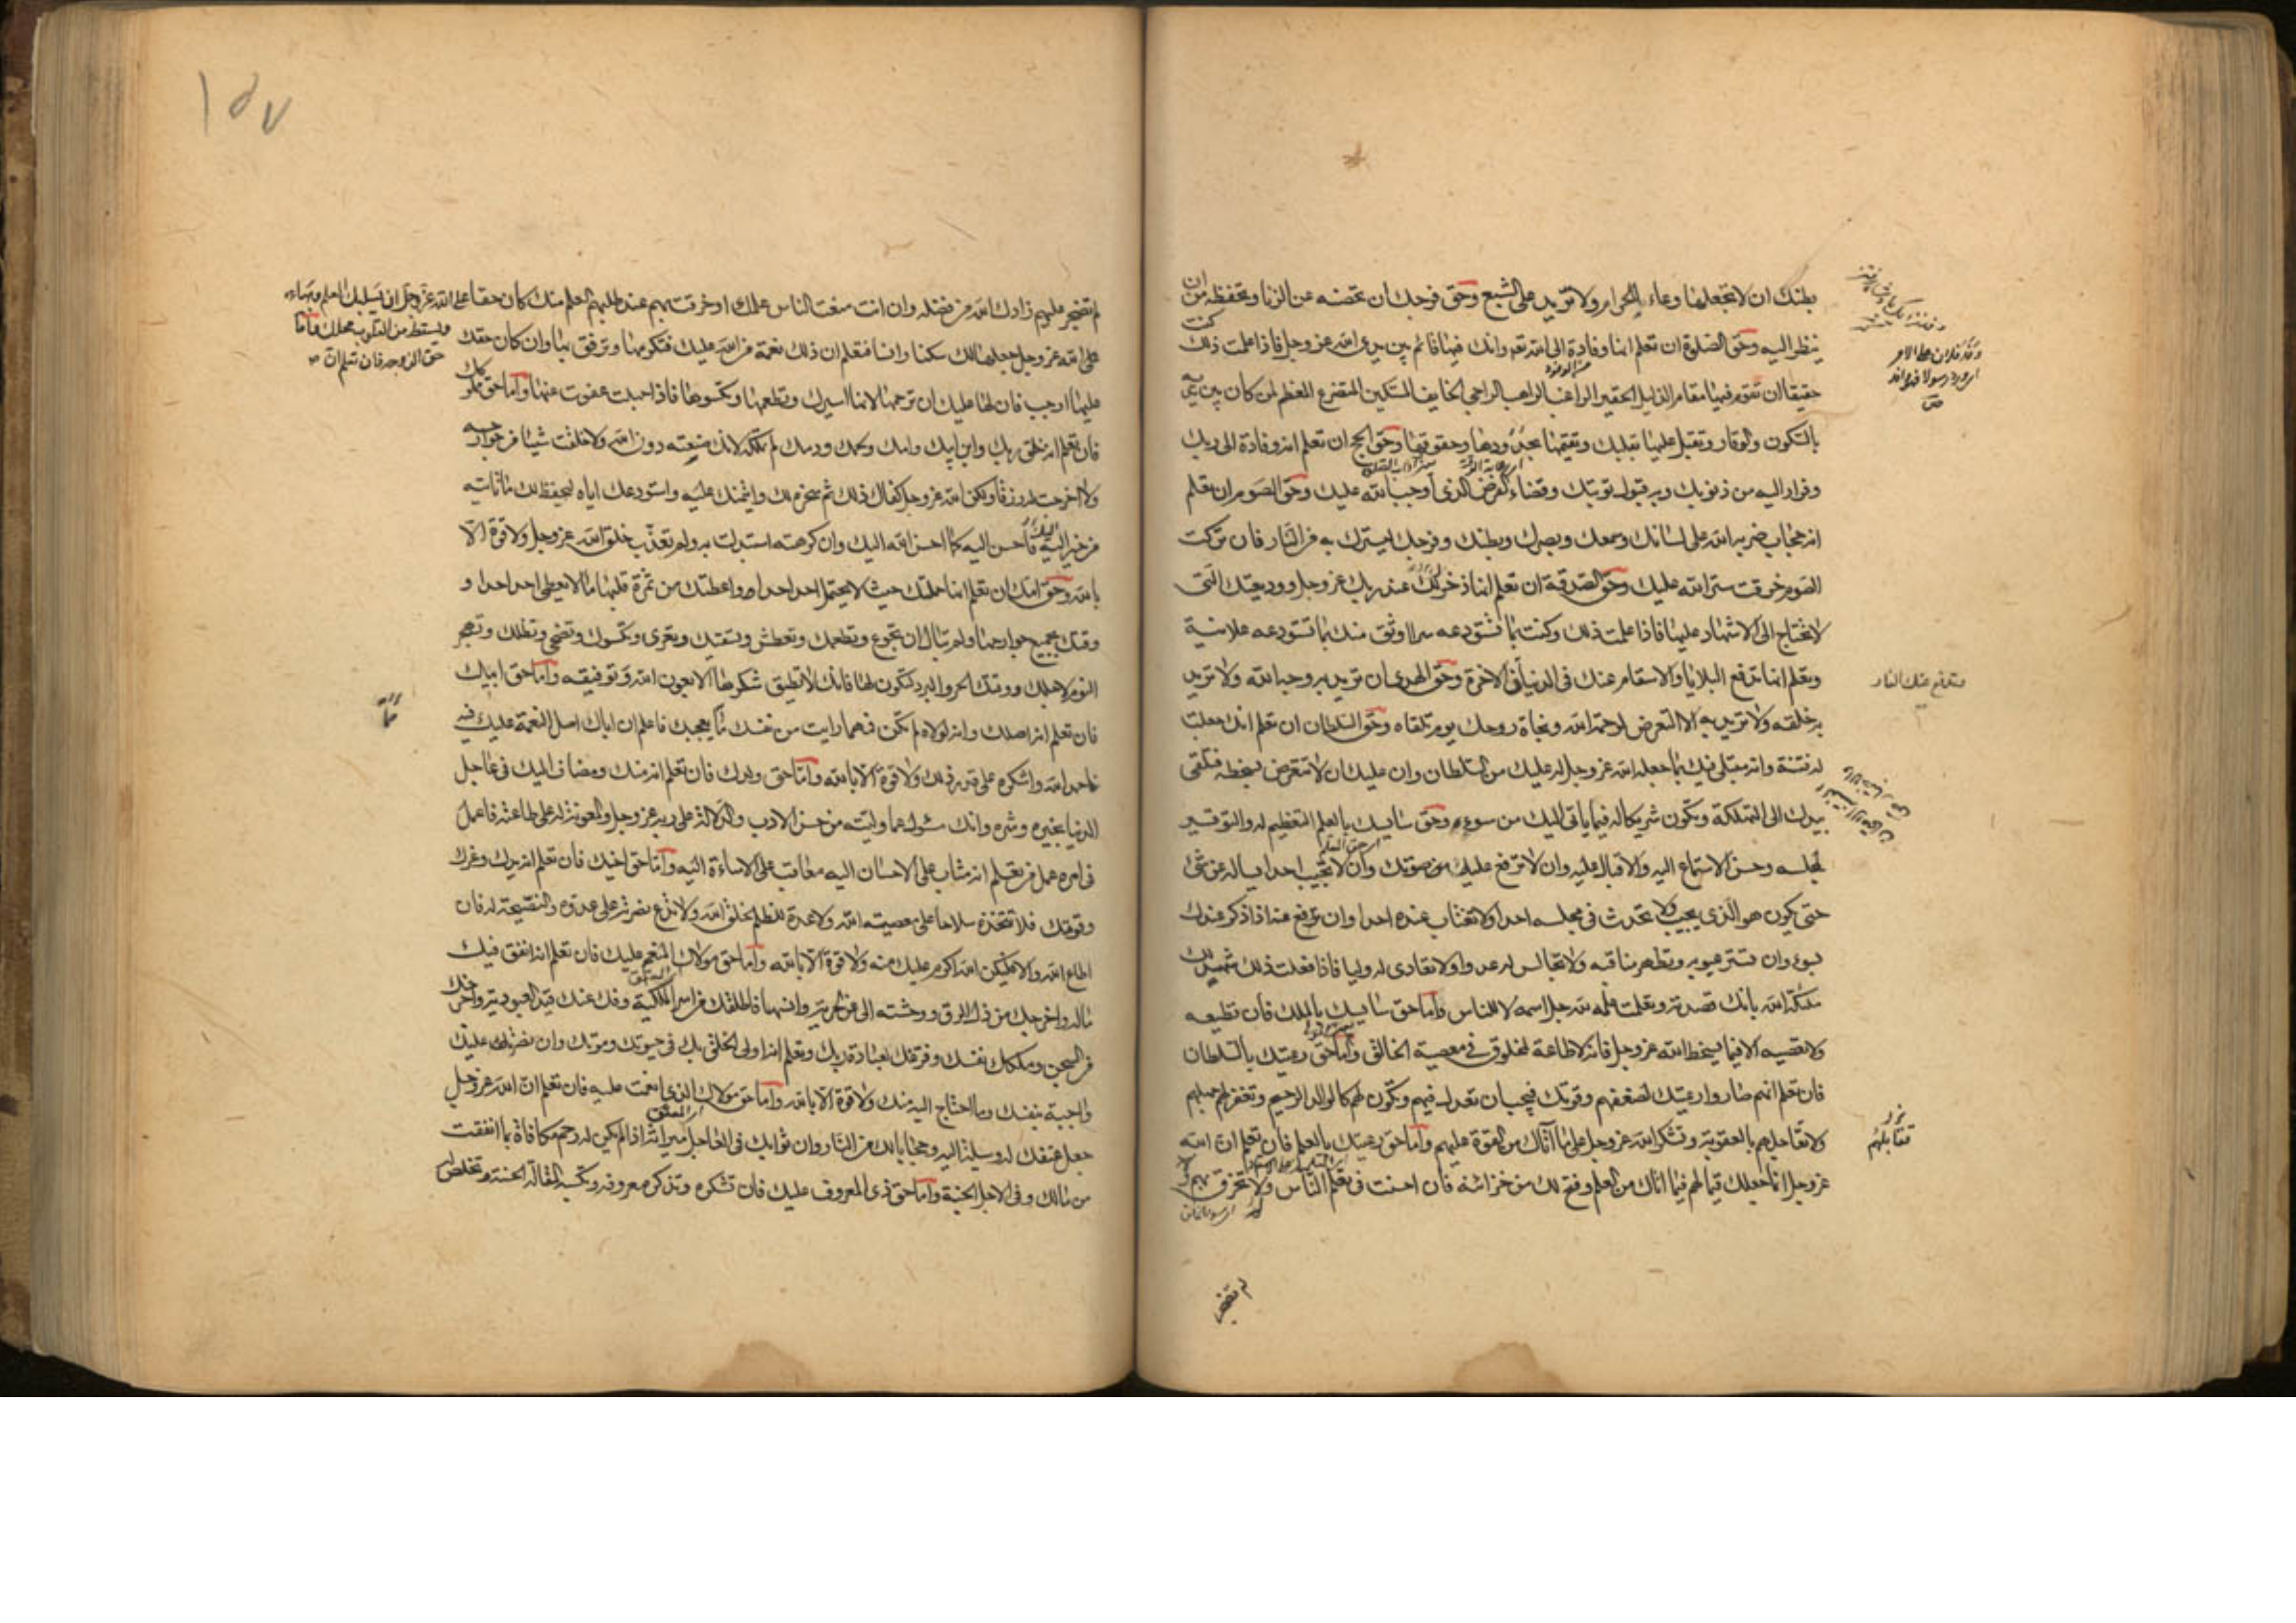 بطنك ان لا تجعلها وعاء للحرام ولا تزيد على الشبع وحق فرجك ان تحصنه عن الزنا وتحفظه من ان
ينظر اليه وحق الصلوة ان تعلم انها وفادة الى الله تعه وانك فيها قائم بين يدى الله عز وجل فاذا علمت ذلك كنت
حقيقا ان تقوم فيها مقام الذليل الحقير الراغب الراهب الراجى الخايف المستكين المتضرع المعظم لمن كان بين يديه
بالسكون والوقار وتقبل عليها بقلبك وتقيمها بحدودها وحقوقها وحق الحج ان تعلم انه وفادة الى ربك
وفرار اليه من ذنوبك وبه قبول توبتك وقضاء الفرض الذى اوجبه الله عليك وحق الصوم ان تعلم
انه حجاب ضربه الله على لسانك وسمعك وبصرك وبطنك وفرجك ليسترك به من النار فان تركت
الصوم خرقت ستر الله عليك وحق الصدقة ان تعلم انها ذخرك عند ربك عز وجل ووديعتك التى
لا تحتاج الى الاشهاد عليها فاذا علمت ذلك وكنت بما تستودعه سرا اوثق منك بما تستودعه علانية
وتعلم انها تدفع البلايا والاسقام عنك فى الدنيا فى الاخرة وحق الهدى ان تريد به وجه الله ولا تريد
به خلقه ولا تريد به الا التعرض لرحمة الله ونجاة روحك يوم تلقاه وحق السلطان ان تعلم انك جعلت
له فتنة وانه مبتلى فيك بما جعله الله عز وجل له عليك من السلطان وان عليك ان لا تتعرض لسخطه فتلقى
بيدك الى التهلكة وتكون شريكا له فيما ياتى اليك من سوء وحق سايسك بالعلم التعظيم له والتوقير
لمجلسه وحسن الاستماع اليه والاقبال عليه وان لا ترفع عليه صوتك وان لا تجيب احدا يساله عن شئ
حتى يكون هو الذى يجيب ولا تحدث فى مجلسه احدا ولا تغتاب عنده احدا وان تدفع عنه اذا ذكر عندك
بسوء وان تستر عيوبه وتظهر مناقبه ولا تجالس له عدوا ولا تعادى له وليا فاذا فعلت ذلك شهد لك
ملئكة الله بانك قصدته وتعلمت علمه لله جل اسمه لا للناس واما حق سايسك بالملك فان تطيعه
ولا تعصيه الا فيما يسخط الله عز وجل فانه لا طاعة لمخلوق فى معصية الخالق واما حق رعيتك بالسلطان
فان تعلم انهم صاروا رعيتك لضعفهم وقوتك فيجب ان تعدل فيهم وتكون لهم كالوالد الرحيم وتغفر لهم جهلهم
ولا تعاجلهم بالعقوبة وتشكر الله عز وجل على ما اتاك من القوة عليهم واما حق رعيتك بالعلم فان تعلم ان الله
عز وجل انما جعلك قيما لهم فيما اتاك من العلم وفتح لك من خزائنه فان احسنت فى تعليم الناس ولا تخرق بهم
ستدفع عنك النار
لم تضجر
١٥٧
لم تضجر عليهم زادك الله من فضله وان انت منعت الناس علمك او خرقت بهم عند طلبهم العلم منك كان حقا على الله عز وجل ان يسلبك العلم وبهاءه
ويسقط من القلوب محلك واما
حق الزوجة فان تعلم ان
الله عز وجل جعلها لك سكنا وانسا فتعلم ان ذلك نعمة من الله عليك فتكرمها وترفق بها وان كان حقك
عليها اوجب فان لها عليك ان ترحمها لانها اسيرك وتطعمها وتكسوها فاذا جهلت عفوت عنها واما حق مملوكك
فان تعلم انه خلق ربك وابن ابيك وامك ولحمك ودمك لم تملكه لانك صنعته دون الله ولا خلقت شيئا من جوارحه
ولا اخرجت له رزقا ولكن الله عز وجل كفاك ذلك ثم سخره لك وائتمنك عليه واستودعك اياه ليحفظ لك ما تاتيه
من خير اليه فاحسن اليه كما احسن الله اليك وان كرهته استبدلت به ولم تعذب خلق الله عز وجل ولا قوة الا
بالله وحق امك ان تعلم انها حملتك حيث لا يحتمل احد احدا واعطتك من ثمرة قلبها ما لا يعطى احد احدا و
وقتك بجميع جوارحها ولم تبال ان تجوع وتطعمك وتعطش وتسقيك وتعرى وتكسوك وتضحى وتظلك وتهجر
النوم لاجلك ووقتك الحر والبرد لتكون لها فانك لا تطيق شكرها الا بعون الله وتوفيقه واما حق ابيك
فان تعلم انه اصلك وانه لولاه لم تكن فمهما رايت من نفسك ما يعجبك فاعلم ان اباك اصل النعمة عليك فيه
فاحمد الله واشكره على قدر ذلك ولا قوة الا بالله واما حق ولدك فان تعلم انه منك ومضاف اليك فى عاجل
الدنيا بخيره وشره وانك مسئول عما وليته من حسن الادب والدلالة على ربه عز وجل والمعونة له على طاعته فاعمل
فى امره عمل من يعلم انه مثاب على الاحسان اليه معاقب على الاساءة اليه واما حق اخيك فان تعلم انه يدك وعزك
وقوتك فلا تتخذه سلاحا على معصية الله ولا عدة للظلم لخلق الله ولا تدع نصرته على عدوه والنصيحة له فان
اطاع الله والا فليكن الله اكرم عليك منه ولا قوة الا بالله واما حق مولاك المنعم عليك فان تعلم انه انفق فيك
ماله واخرجك من ذل الرق ووحشته الى عز الحرية وانسها فاطلقك من اسر الملكية وفك عنك قيد العبودية واخرجك
من السجن وملكك نفسك وفرغك لعبادة ربك وتعلم انه اولى الخلق بك فى حيوتك وموتك وان نصرته عليك
واجبة بنفسك وما احتاج اليه منك ولا قوة الا بالله واما حق مولاك الذى انعمت عليه فان تعلم ان الله عز وجل
جعل عتقك له وسيلة اليه وحجابا لك من النار وان ثوابك فى العاجل ميراثه اذا لم يكن له رحم مكافاة بما انفقت
من مالك وفى الاجل الجنة واما حق ذى المعروف عليك فان تشكره وتذكر معروفه وتكسبه المقالة الحسنة وتخلص له